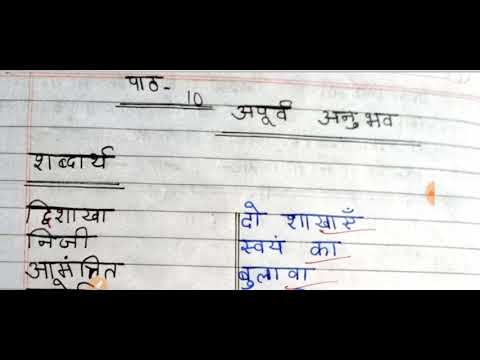 पाठ- 10
अपूर्व अनुभव
शब्दार्थ
द्विशाखा दो शाखाएँ
निजी स्वयं का
आमंत्रित बुलावा